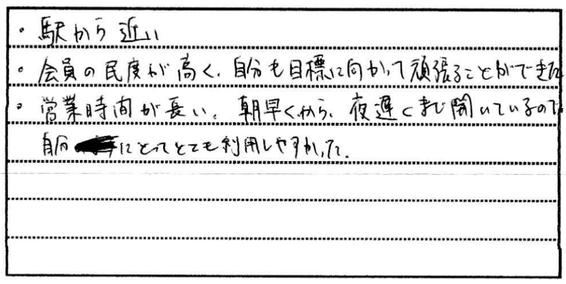 ・駅から近い
・会員の民度が高く、自分も目標に向かって頑張ることができた
・営業時間が長い。朝早くから、夜遅くまで開いているので
自分にとってとても利用しやすかった。